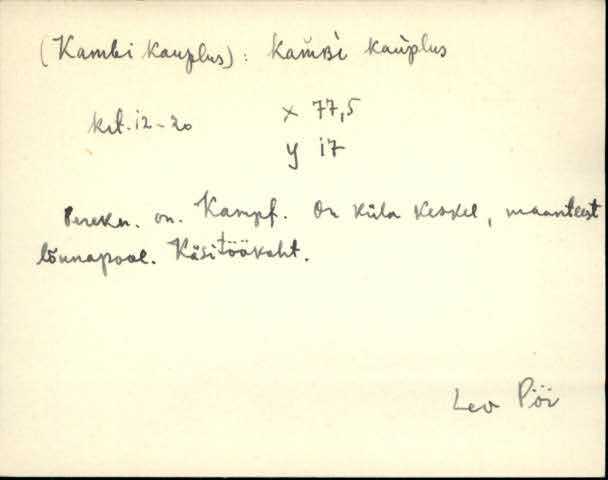 (Kambi kauplus): kam̆ʙì kaùplus
krt. 12-20 x 77,5
y 17
Perekn. on Kampf. On küla keskel, maanteest
lõunapool. Käsitöökoht.
Lev Pöi